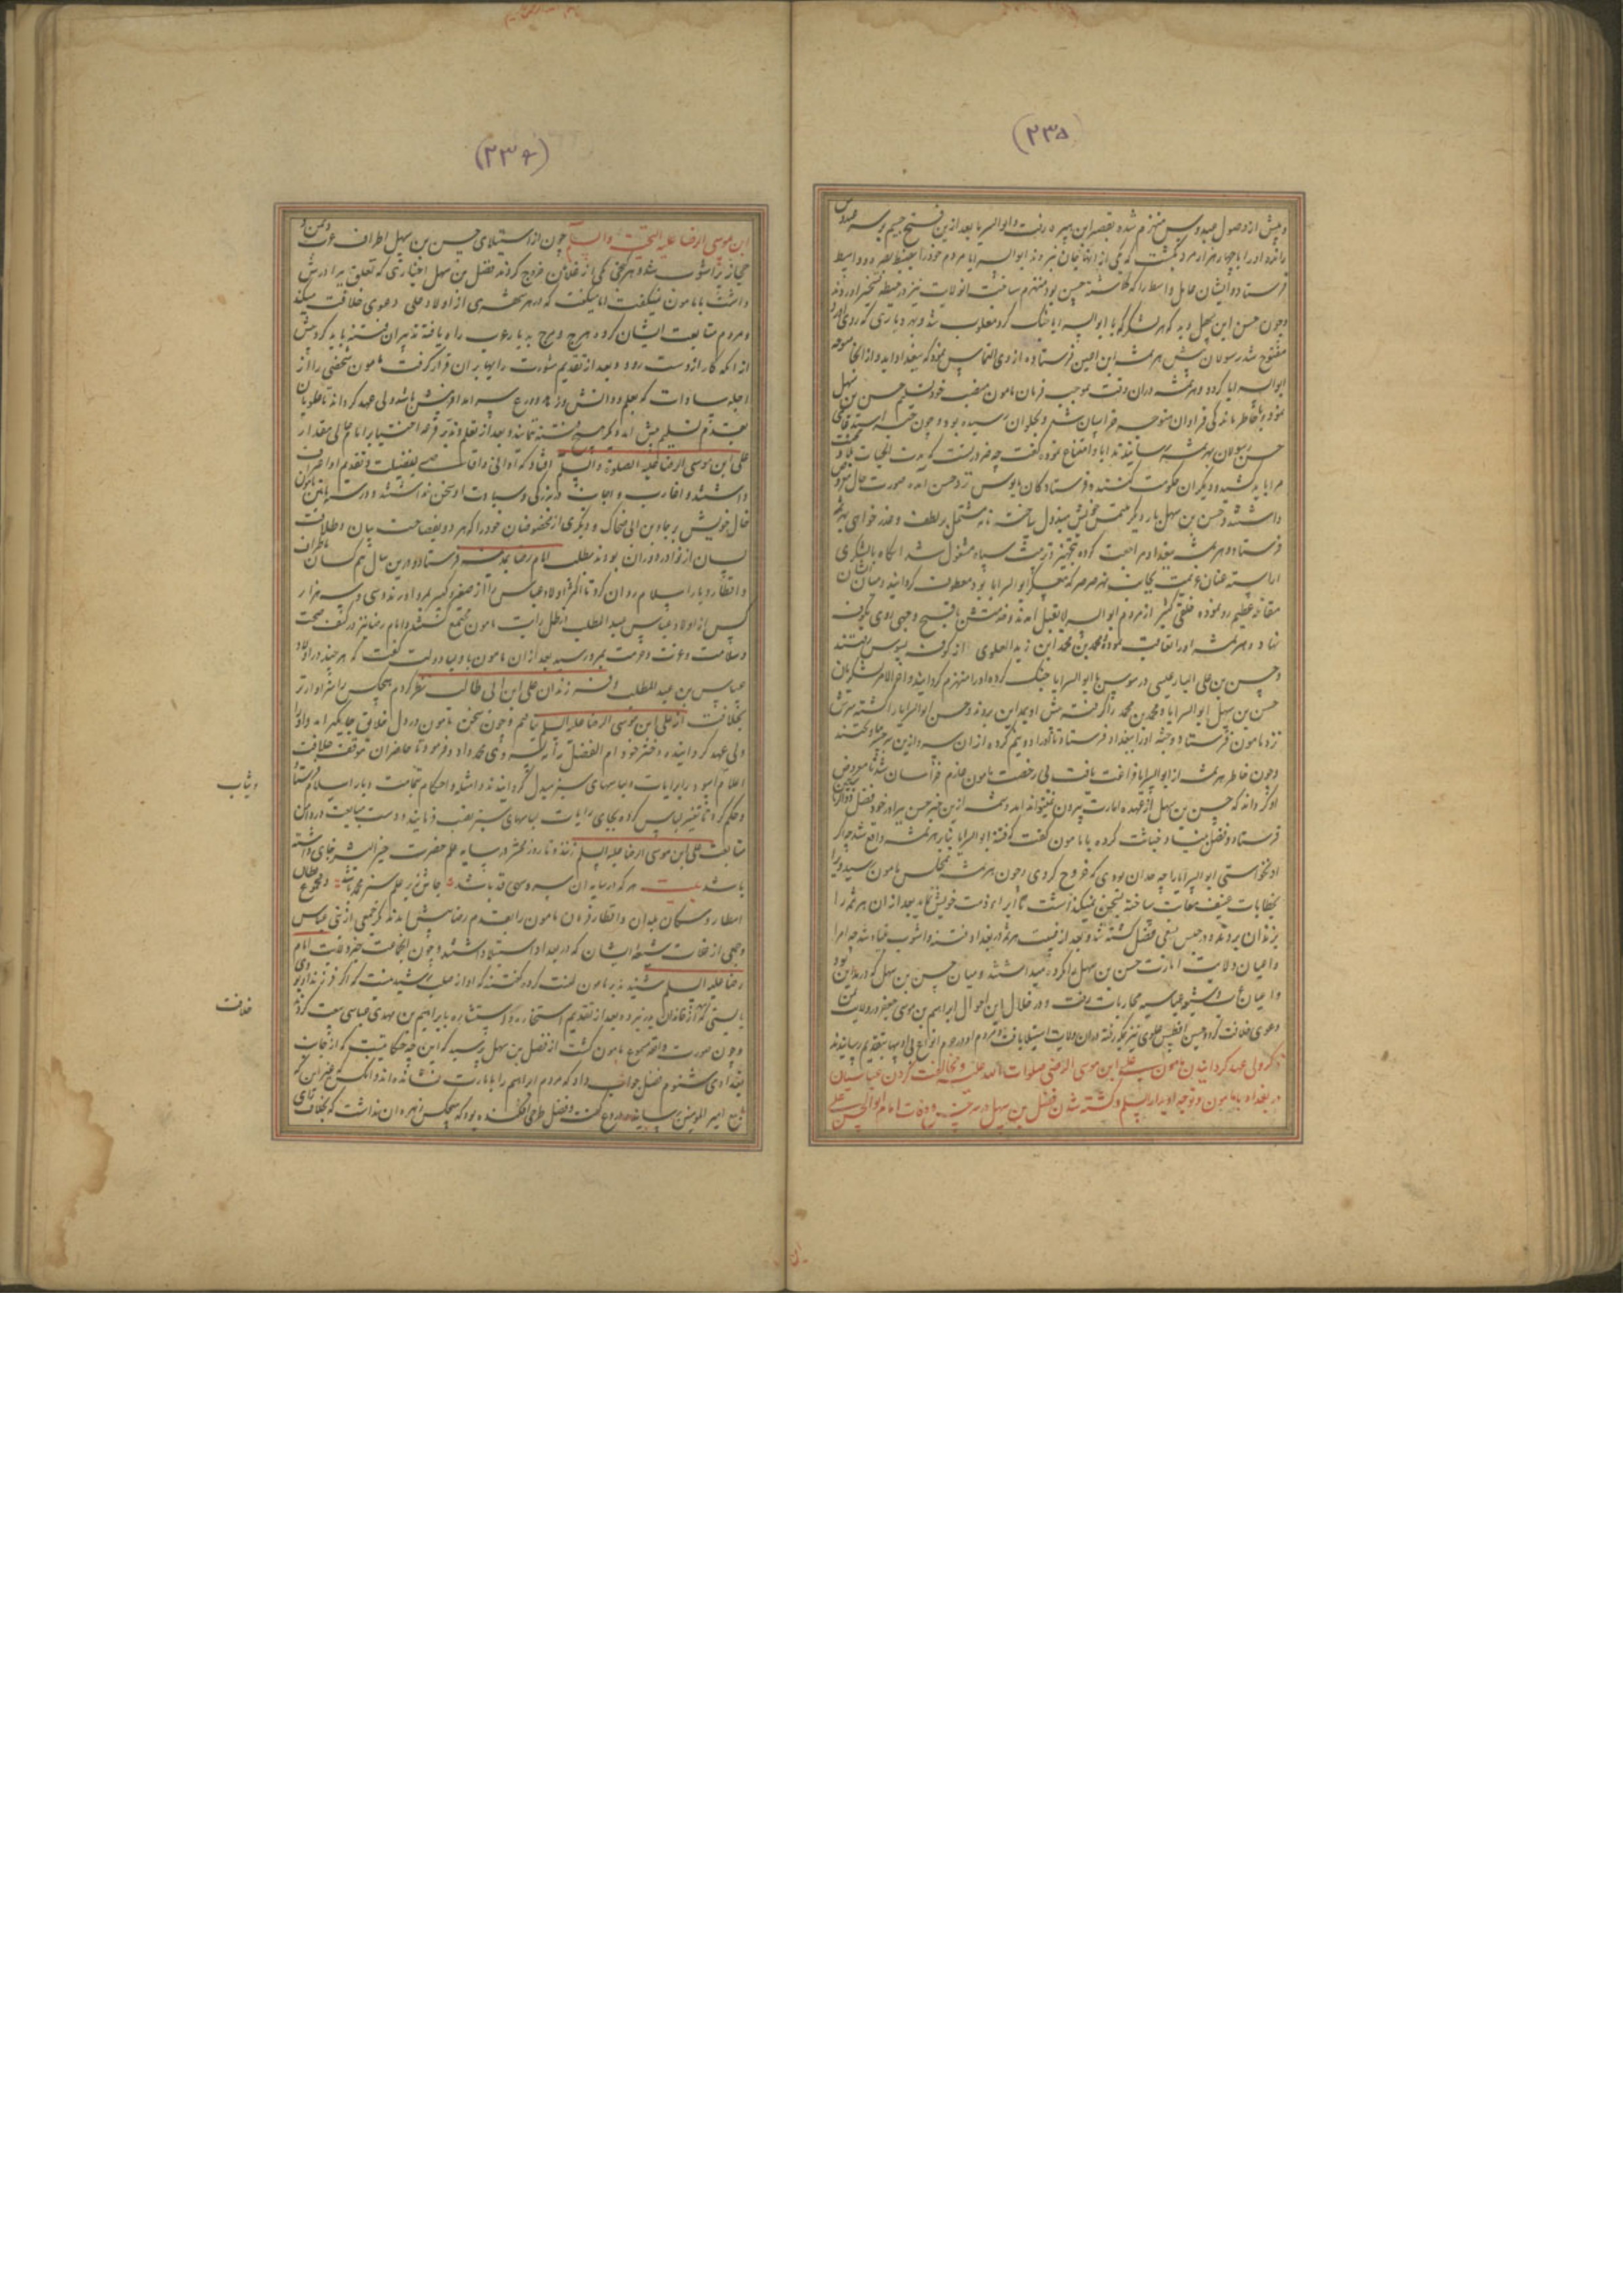 (۲۳۵)
و پیش از وصول عبدوس منهزم شده بقصر ابن هبیره رفت و ابوالسرایا بعد ازین فتح جسیم بر سر عبدوس
رانده او را با چهار هزار مرد بکشت که یکی از ایشان جان نبرد و ابوالسرایا مردم خود را بضبط بصره و واسط
فرستاد و ایشان عامل واسط را که گماشته حسن بود منهزم ساخت
و چون حسن ابن سهل دید که هر لشکر که با ابوالسرایا جنک کرد مغلوب شد
مفتوح شد رسولان پیش هرثمه ابن اعین فرستاده از وی التماس نمود که ببغداد آید و از آنجا متوجه
ابوالسرایا کردد و هرثمه در آن وقت بموجب فرمان مامون منصب خود تسلیم حسن بن سهل
نموده با خاطر ماندکی فراوان متوجه خراسان شد و بحلوان رسیده بود و چون
حسن رسولان بهرثمه رسانیدند ابا و امتناع نموده گفت
مرا باید کشید و دیگران حکومت کنند و فرستادگان مایوس نزد حسن آمده صورت حال معروض
داشتند و حسن بن سهل بار دیگر نامه مشتمل بر لطف و عذر خواهی بهرثمه
فرستاد و هرثمه ببغداد مراجعت کرده بتجهیز و ترتیب سپاه مشغول شد آنکاه با لشکری
آراسته عنان عزیمت بجانب نهر صرصر که معسکر ابوالسرایا بود معطوف کردانید و میان ایشان
مقاتله عظیم رو نموده خلقی کثیر از مردم ابوالسرایا بقتل آمدند
نهاد و هرثمه او را تعاقب نموده محمد بن محمد ابن زید العلوی از کوفه بسوس رفتند
و حسن بن علی در سوس با ابوالسرایا جنک کرده او را منهزم کردانید و آخر الامر لشکریان
حسن بن سهل ابوالسرایا و محمد بن محمد را گرفته پیش او بردند و حسن ابوالسرایا را کشته سرش
نزد مامون فرستاد و جثه او را ببغداد فرستاد تا او را دو نیم کرده از آن سر جسر بیاویختند
و چون خاطر هرثمه از ابوالسرایا فراغت یافت بی رخصت مامون عازم خراسان شد تا معروض
او گرداند که حسن بن سهل از عهده امارت بیرون نمیتواند آمد
فرستاد و فضل بنیاد خباثت کرده با مامون گفت که فتنه ابوالسرایا بنابر هرثمه واقع شد چه اگر
او نخواستی ابوالسرایا را چه حد آن بودی که خروج کردی و چون هرثمه بمجلس مامون رسید ویرا
بخطابات عنیف معاتب ساخته بعد از آن هرثمه را
بزندان بردند و در حبس بسعی فضل کشته شد و بعد از قضیه هرثمه در بغداد فتنه و آشوب زیاد شد چه امرا
و اعیان ولایت امارت حسن بن سهل را مکروه میداشتند و میان حسن بن سهل که در مداین بود
و اعیان عباسیه محاربات رفت و در خلال این احوال ابراهیم بن موسی جعفر در ولایت یمن
دعوی خلافت کرد و حسین افطس علوی نیز مکه رفته در آن ولایت استیلا یافت
ذکر ولی عهد گردانیدن مامون علی ابن موسی الرضی صلوات الله علیه و مخالفت کردن عباسیان
در بغداد با مامون و توجه او بدار السلم و کشته شدن فضل بن سهل در سرخس و وفات امام ابو الحسن علی
(۲۳۶)
ابن موسی الرضا علیه التحیة والسلم چون از استیلای حسن بن سهل اطراف عرب و یمن و
حجاز پر آشوب شد و هر کنجی یکی از علویان خروج کردند فضل بن سهل اخباری که تعلق ببرادرش
داشت با مامون نمیگفت اما میگفت که در هر شهری از اولاد علی دعوی خلافت میکند
و مردم متابعت ایشان کرده هرج و مرج بدیار عرب راه یافته تدبیر آن فتنه باید کرد پیش
از آنکه کار از دست رود و بعد از تقدیم مشورت رایها بر آن قرار گرفت که مامون شخصی را از
اجله سادات که بعلم و دانش و زهد و ورع سرآمد آفرینش باشد ولی عهد گرداند تا علویان
بقدم تسلیم پیش آمده دیگر میل فتنه ننمایند و بعد از تعقل و تدبر قرعه اختیار بر امام عالی مقدار
علی ابن موسی الرضا علیه الصلوة والسلم افتاد
داشتند و اقارب و اجانب در بزرگی و سیادت او سخن نداشتند و درین سال مامون
خال خویش رجاء بن ابی ضحاک و دیگری از مخصوصان خود را که هر دو بفصاحت بیان و طلاقت
لسان از نوادر دوران بودند بطلب امام رضا بمدینه فرستاد و درین سال هم کسان باطراف
و اقطار دیار اسلام روان کرد تا اکثر اولاد عباس را از صغیر و کبیر بمرو آورند و سی و سه هزار
کس از اولاد عباس عبد المطلب در ظل رایت مامون مجتمع گشتند و امام رضا نیز در کنف صحت
و سلامت و عزت و حرمت بمرو رسید بعد از آن مامون با وجوه دولت گفت که هر چند در اولاد
عباس بن عبد المطلب و فرزندان علی ابن ابی طالب نظر کردم هیچکس را سزاوارتر
بخلافت از علی ابن موسی الرضا علیه السلم نیافتم و چون سخن مامون در دل خلایق جایگیر آمد او را
ولی عهد گردانید و دختر خود ام الفضل را به پسر وی محمد داد و فرمود تا حاضران موقف خلافت
اعلام سود را برایات و لباسهای سبز مبدل گردانیدند و امثله و احکام بجانب دیار اسلام فرستاد
و حکم کرد تا تغییر لباس کرده بجای رایات لباسهای سبز نصب فرمایند و دست مبایعت در دامن
متابعت علی ابن موسی الرضا علیه السلم زنند و تا روز محشر در سایه علم حضرت خیر البشر جای داشته
باشند بیت هر که در سایه آن سرو سهی قد باشد جاش در زیر علم سبز محمد باشد و مجموع
امطار و سکان بلدان و اقطار فرمان مامون را بقدم رضا پیش آمدند مگر جمعی از بنی عباس
و جمعی از غلات شیعه ایشان که در بغداد استیلا داشتند و چون آن جماعت خبر ولایت امام
رضا علیه السلم شنیدند بر مامون لعنت کرده گفتند که او از صلب رشید نیست که اگر فرزند او بودی
بایستی که از خاندان پدر نبردی و بعد از تقدیم استخاره و استشاره با ابراهیم بن مهدی عباسی بیعت کردند
و چون صورت واقعه مسموع مامون گشت از فضل بن سهل پرسید که این چه حکایتست که از جانب
بغداد می شنوم فضل جواب داد که مردم ابراهیم را بامارت نشانده اند و آنکس که غیر این
بسمع امیر المومنین رسانیده دروغ گفته و فضل طرحی افکنده بود که هیچکس زهره آن نداشت که بخلاف رای
وثیاب
خلافت